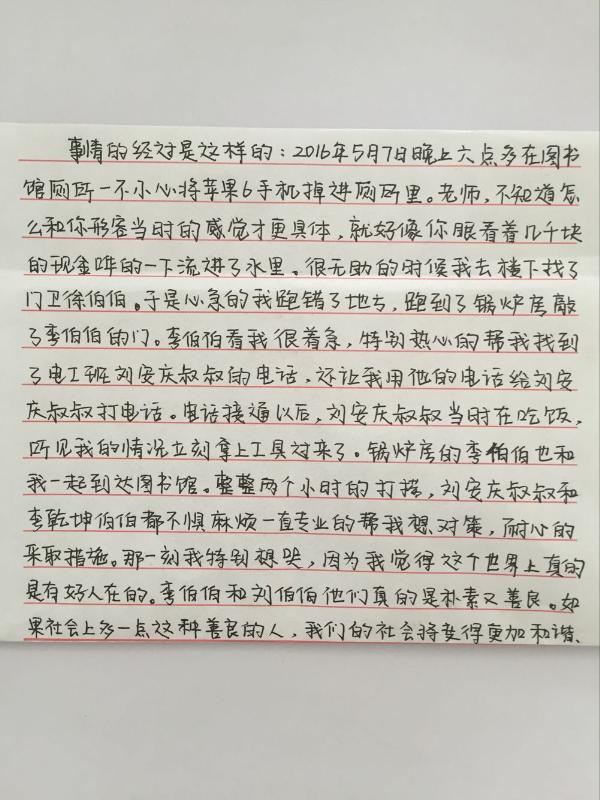 事情的经过是这样的：2016年5月7日晚上六点多在图书
馆厕所一不小心将苹果6手机掉进厕所里。老师，不知道怎
么和你形容当时的感觉才更具体，就好像你眼看着几千块
的现金哗的一下流进了水里。很无助的时候我去楼下找了
门卫徐伯伯。于是心急的我跑错了地方，跑到了锅炉房敲
了李伯伯的门。李伯伯看我很着急，特别热心的帮我找到
了电工班刘安庆叔叔的电话，还让我用他的电话给刘安
庆叔叔打电话。电话接通以后，刘安庆叔叔当时在吃饭，
听见我的情况立刻拿上工具过来了。锅炉房的李伯伯也和
我一起到达图书馆。整整两个小时的打捞，刘安庆叔叔和
李乾坤伯伯都不惧麻烦一直专业的帮我想对策，耐心的
采取措施。那一刻我特别想哭，因为我觉得这个世界上真的
是有好人在的。李伯伯和刘伯伯他们真的是朴素又善良。如
果社会上多一点这种善良的人，我们的社会将变得更加和谐、